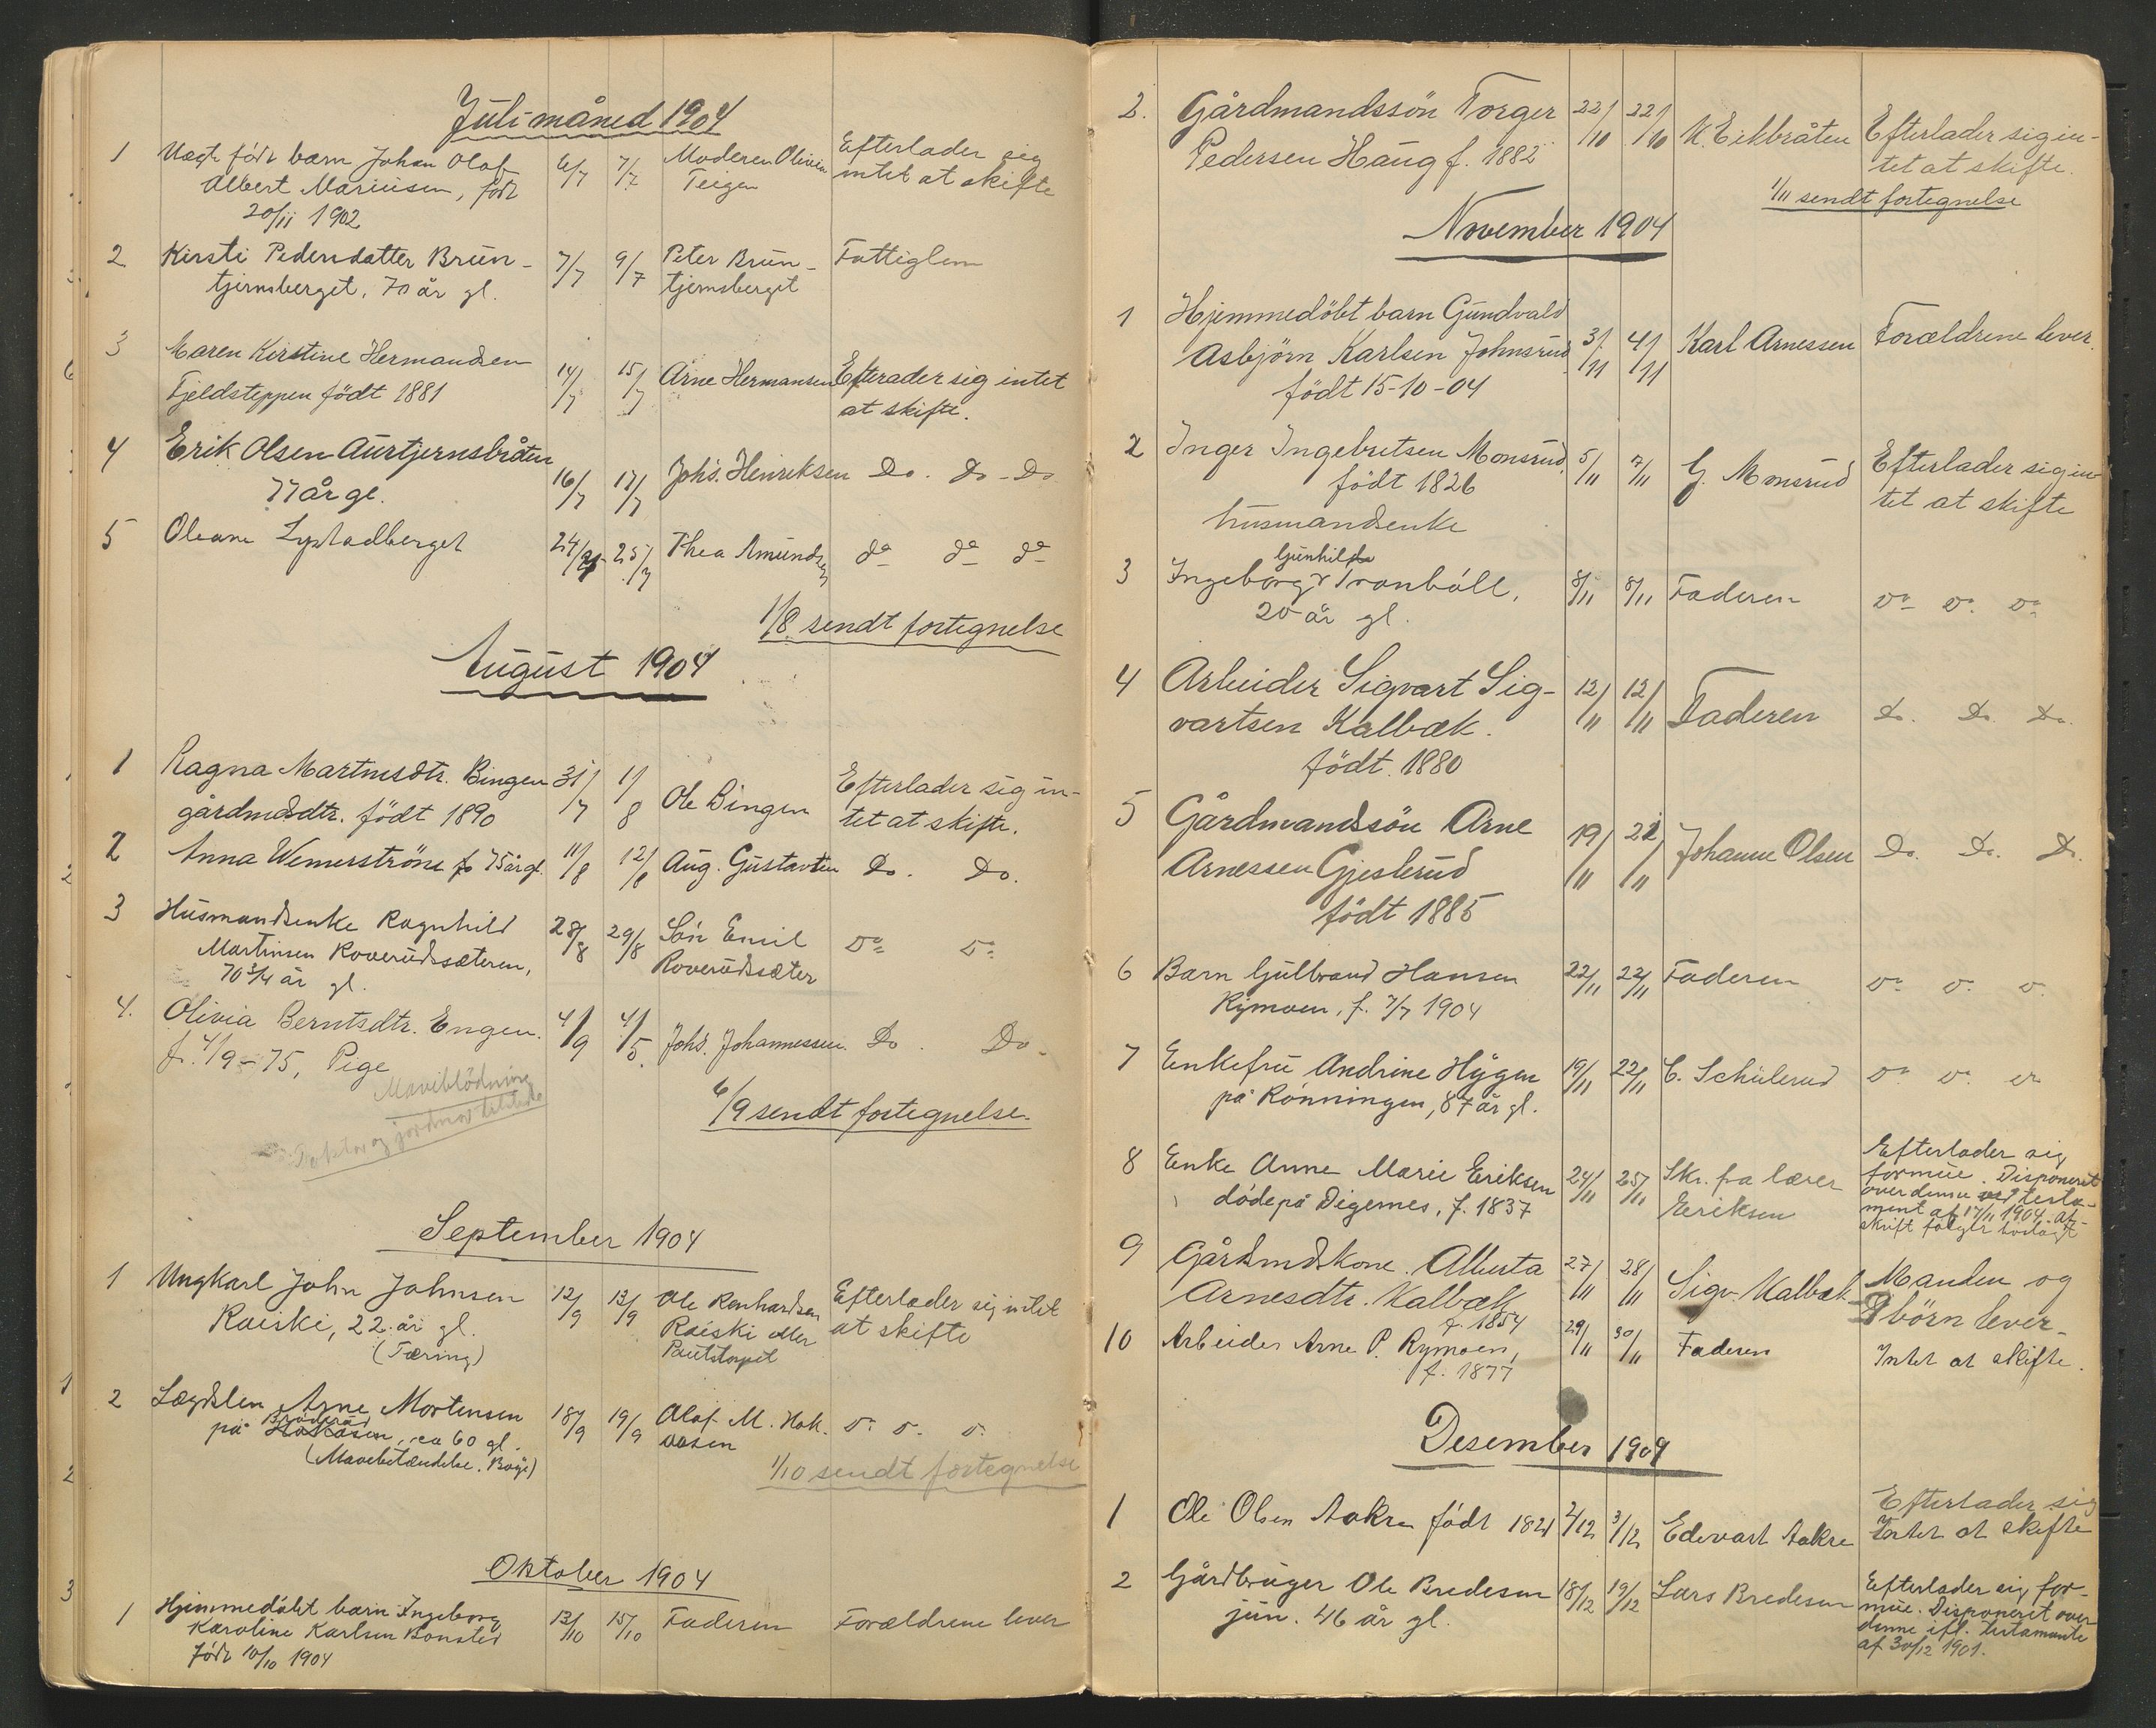 Juli måned 1904
1 Uægte födt barn Johan Olaf 6/7 7/7 Moderen Olivia Efterlader sig
Albert Mariusen, födt Teigen intet at skifte
20/11 1902
2 Kirsti Pedersdatter Brun- 7/7 9/7 Peter Brun- Fattiglem
tjernsberget, 70 år gl. tjernsberget
3 Maren Kirstine Hermandsen 14/7 15/7 Arne Hermansen Efterader sig intet
Fjeldsteppen födt 1881 at skifte.
4 Erik Olsen Aurtjernsbråten 16/7 17/7 Johs. Henriksen Do. Do - Do
77 år gl.
5 Oleane Lystadberget 24/7 25/7 Thea Amundsen do do do
1/8 sendt fortegnelse
August 1904
1 Ragna Martinsdtr. Bingen 31/7 1/8 Ole Bingen Efterlader sig in-
gårdmdsdtr. födt 1890 tet at skifte.
2 Anna Wennerström 75 år gl. 11/8 12/8 Aug. Gustavsen Do. Do.
3 Husmandsenke Ragnhild 28/8 29/8 Sön Emil Do Do
Martinsen Roverudsæteren, Roverudsæter
70 3/4 år gl.
4. Olivia Berntsdtr. Engen. 4/9 4/5 Johs. Johannessen. Do. Do.
f. 4/9-75, Pige
Maveblödning
Doktor og jordmor
6/9 sendt fortegnelse.
September 1904
1 Ungkarl John Johnsen 12/9 13/9 Ole Renhardsen Efterlader sig intet
Raiski, 22 år gl. Raiski eller at skifte
(Tæring)
2 Lægdslem Arne Mortensen 18/9 19/9 Olaf M. Hok- Do. Do. Do.
på Hokåsen, ca 60 gl. åsen
(Mavebetændelse.
1/10 sendt fortegnelse
Oktober 1904
1 Hjemmedöbt barn Ingeborg 13/10 15/10 Faderen Forældrene lever
Karoline Karlsen Bonsted
födt 10/10 1904
2. Gårdmandssön Torger 22/10 22/10 K. Eikbråten Efterlader sig in-
Pedersen Haug f. 1882 tet at skifte.
1/11 sendt fortegnelse
November 1904
1 Hjemmedöbt barn Gundvald 3/11 4/11 Karl Arnessen Forældrene lever.
Asbjörn Karlsen Johnsrud
födt 15-10-04
2 Inger Ingebretsen Monsrud, 5/11 7/11 G. Monsrud Efterlader sig in-
födt 1826 tet at skifte
husmandsenke
Gunhilda
3 Ingeborg Tranböll, 8/11 8/11 Faderen Do Do. Do
20 år gl.
4 Arbeider Sigvart Sig- 12/11 12/11 Faderen Do. Do. Do.
vartsen Kalbæk.
födt. 1880
5 Gårdmandssön Arne 19/11 22/11 Johanne Olsen Do. Do. Do.
Arnessen Gjeslerud
födt 1885
6 Barn Gulbrand Hansen 22/11 22/11 Faderen Do. Do. Do.
Rymoen, f. 7/7 1904
7 Enkefru Andrine Hygen 19/11 22/11 C. Schulerud Do. Do. Do
på Rönningen, 87 år gl.
8 Enke Anne Marie Eriksen 24/11 25/11 Skr. fra lærer Efterlader sig
dödepå Digernes, f. 1837 Eriksen formue. Disponeret
over denne ved testa-
ment af 17/11 1904. Af-
skrift fölger
9 Gårdmdskone. Alberta 27/11 28/11 Sigv. Kalbæk Manden og
Arnesdtr. Kalbæk 9 börn lever.
f. 1854
10 Arbeider Arne P. Rymoen, 29/11 30/11 Faderen Intet at skifte.
f. 1877
Desember 1904
1 Ole Olsen Aakre födt 1821 2/12 3/12 Edevart Aakre Efterlader sig
Intet at skifte
2 Gårdbruger Ole Bredesen 18/12 19/12 Lars Bredesen Efterlader sig for-
jun. 46 år gl. mue. Disponeret over
denne ifl. testamente
af 30/12 1901.